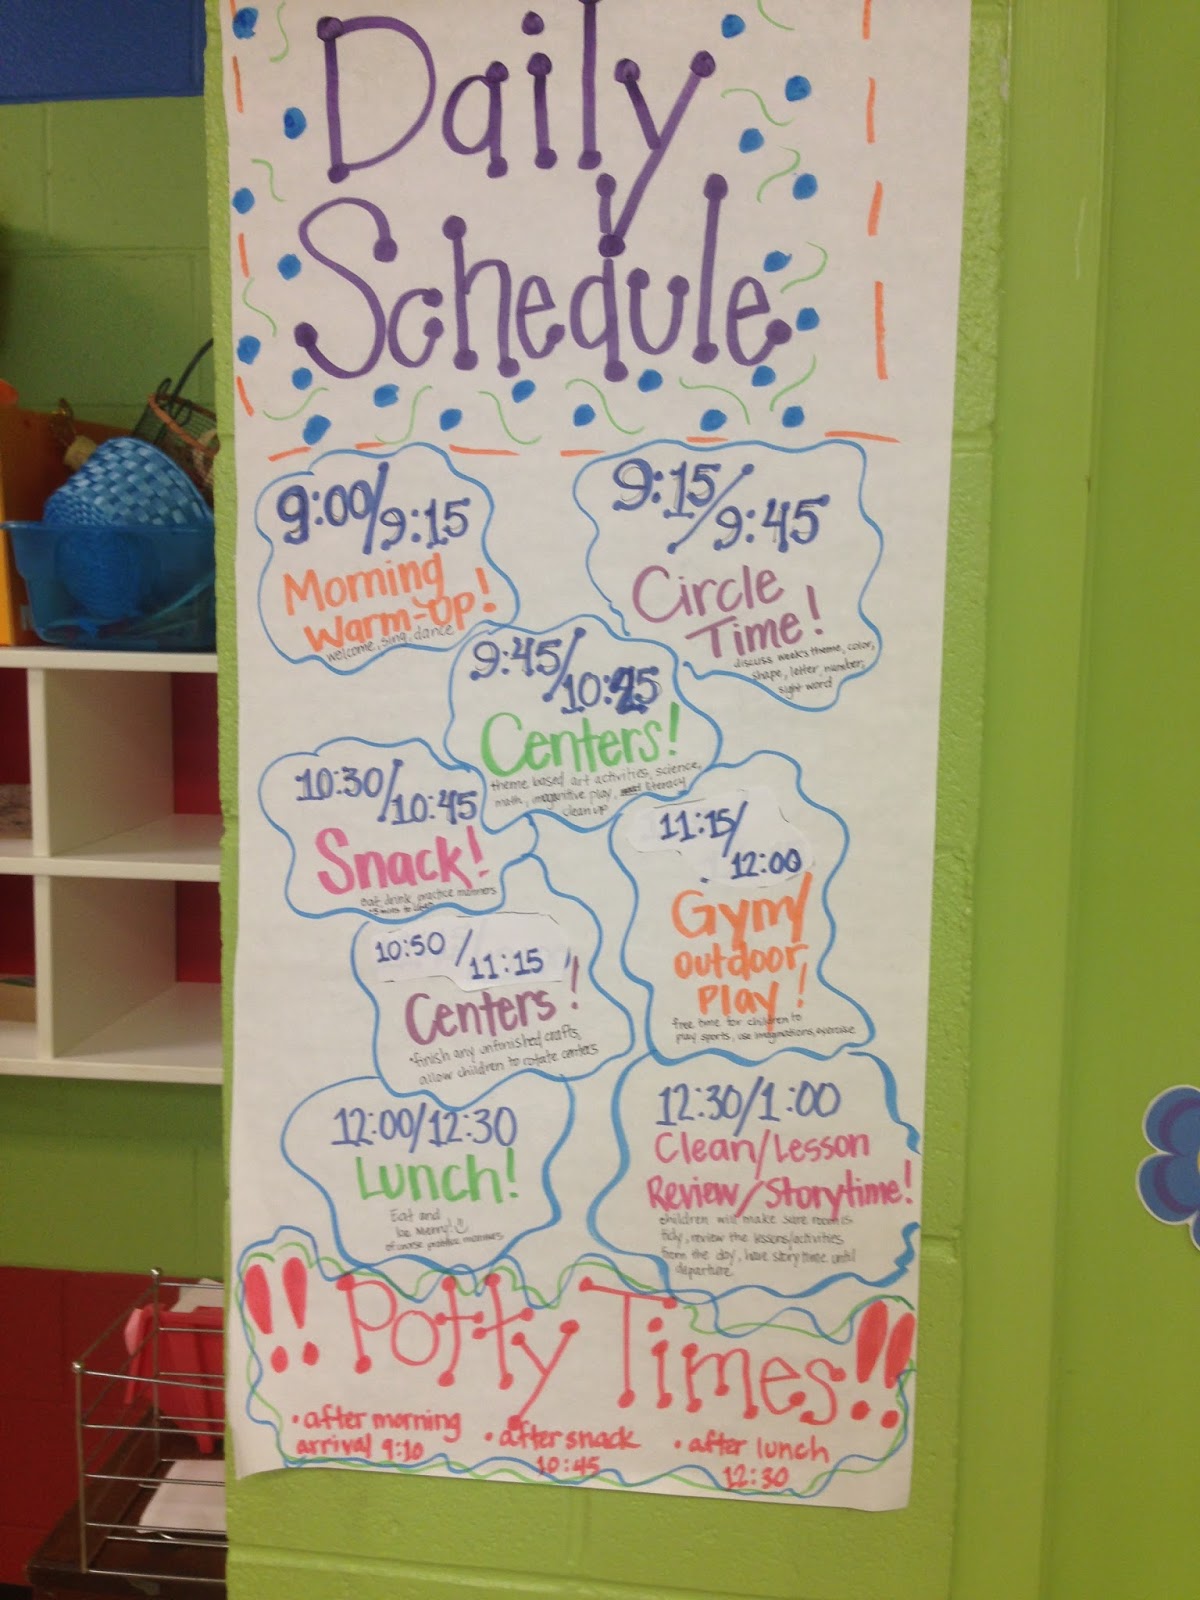 Daily
Schedule
9:00/9:15
Morning
Warm-Up!
welcome, sing, dance
9:15/9:45
Circle
Time!
discuss week's theme, color,
shape, letter, number,
sight word
9:45/
Centers!
theme based art activities, science,
math, imaginitive play, literacy
clean up
10:30/10:45
Snack!
eat, drink, practice manners
11:15/
12:00
Gym/
outdoor
Play!
free time for children to
play sports, use imaginations, exercise
10:50/11:15
Centers!
•finish any unfinished crafts,
allow children to rotate centers
12:00/12:30
Lunch!
Eat and
be merry!
of course practice manners
12:30/1:00
Clean/Lesson
Review/Storytime!
children will make sure room is
tidy, review the lessons/activities
from the day, have storytime until
departure
!! Potty Times!!
• after morning
arrival 9:10
• after snack
10:45
• after lunch
12:30